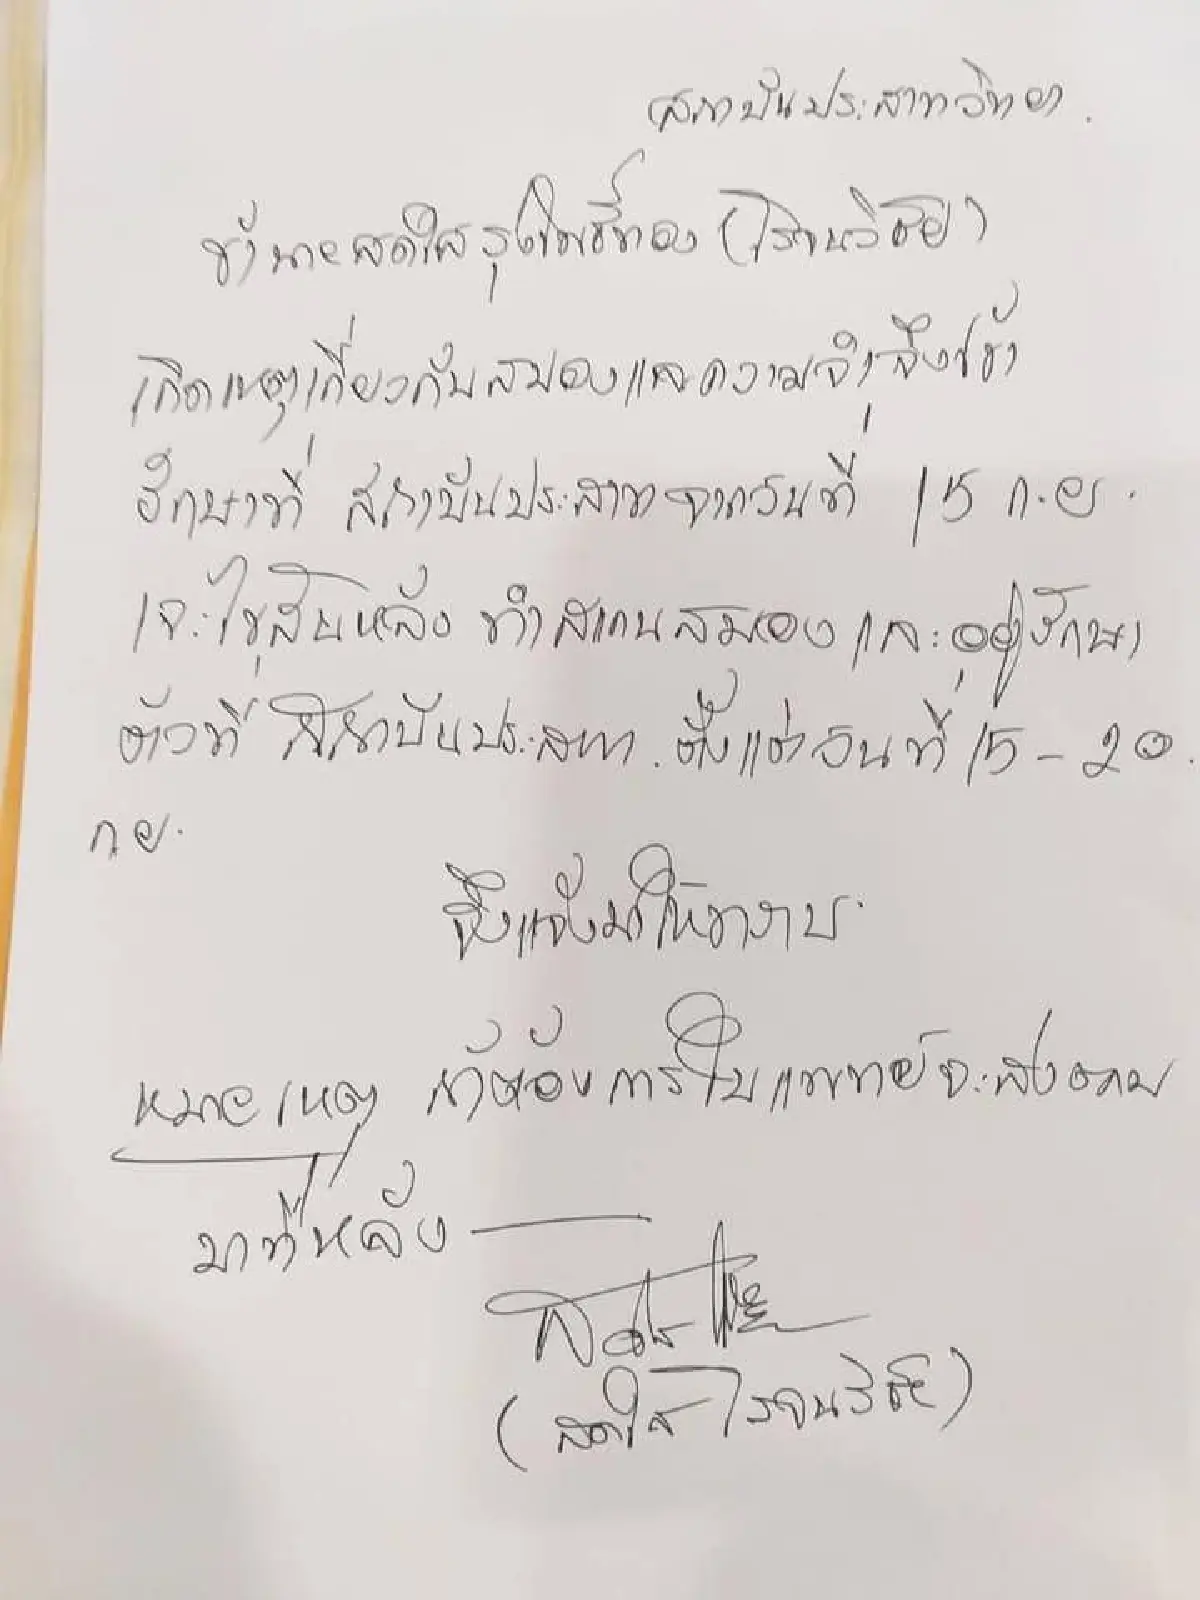 สถาบันประสาทวิทยา.
ข้านายสดใส รุ่งโพธิ์ทอง (โรจนวิชัย)
เกิดเหตุเกี่ยวกับสมองและความจำจึงเข้า
รักษาที่ สถาบันประสาทจากวันที่ 15 ก.ย.
เจาะไขสันหลัง ทำสแกนสมอง และอยู่รักษา
ตัวที่ สถาบันประสาท. ตั้งแต่วันที่ 15 - 20.
ก.ย.
จึงแจ้งมาให้ทราบ.
หมายเหตุ ถ้าต้องการใบแพทย์จะส่งตาม
มาทีหลัง
(สดใส โรจนวิชัย)